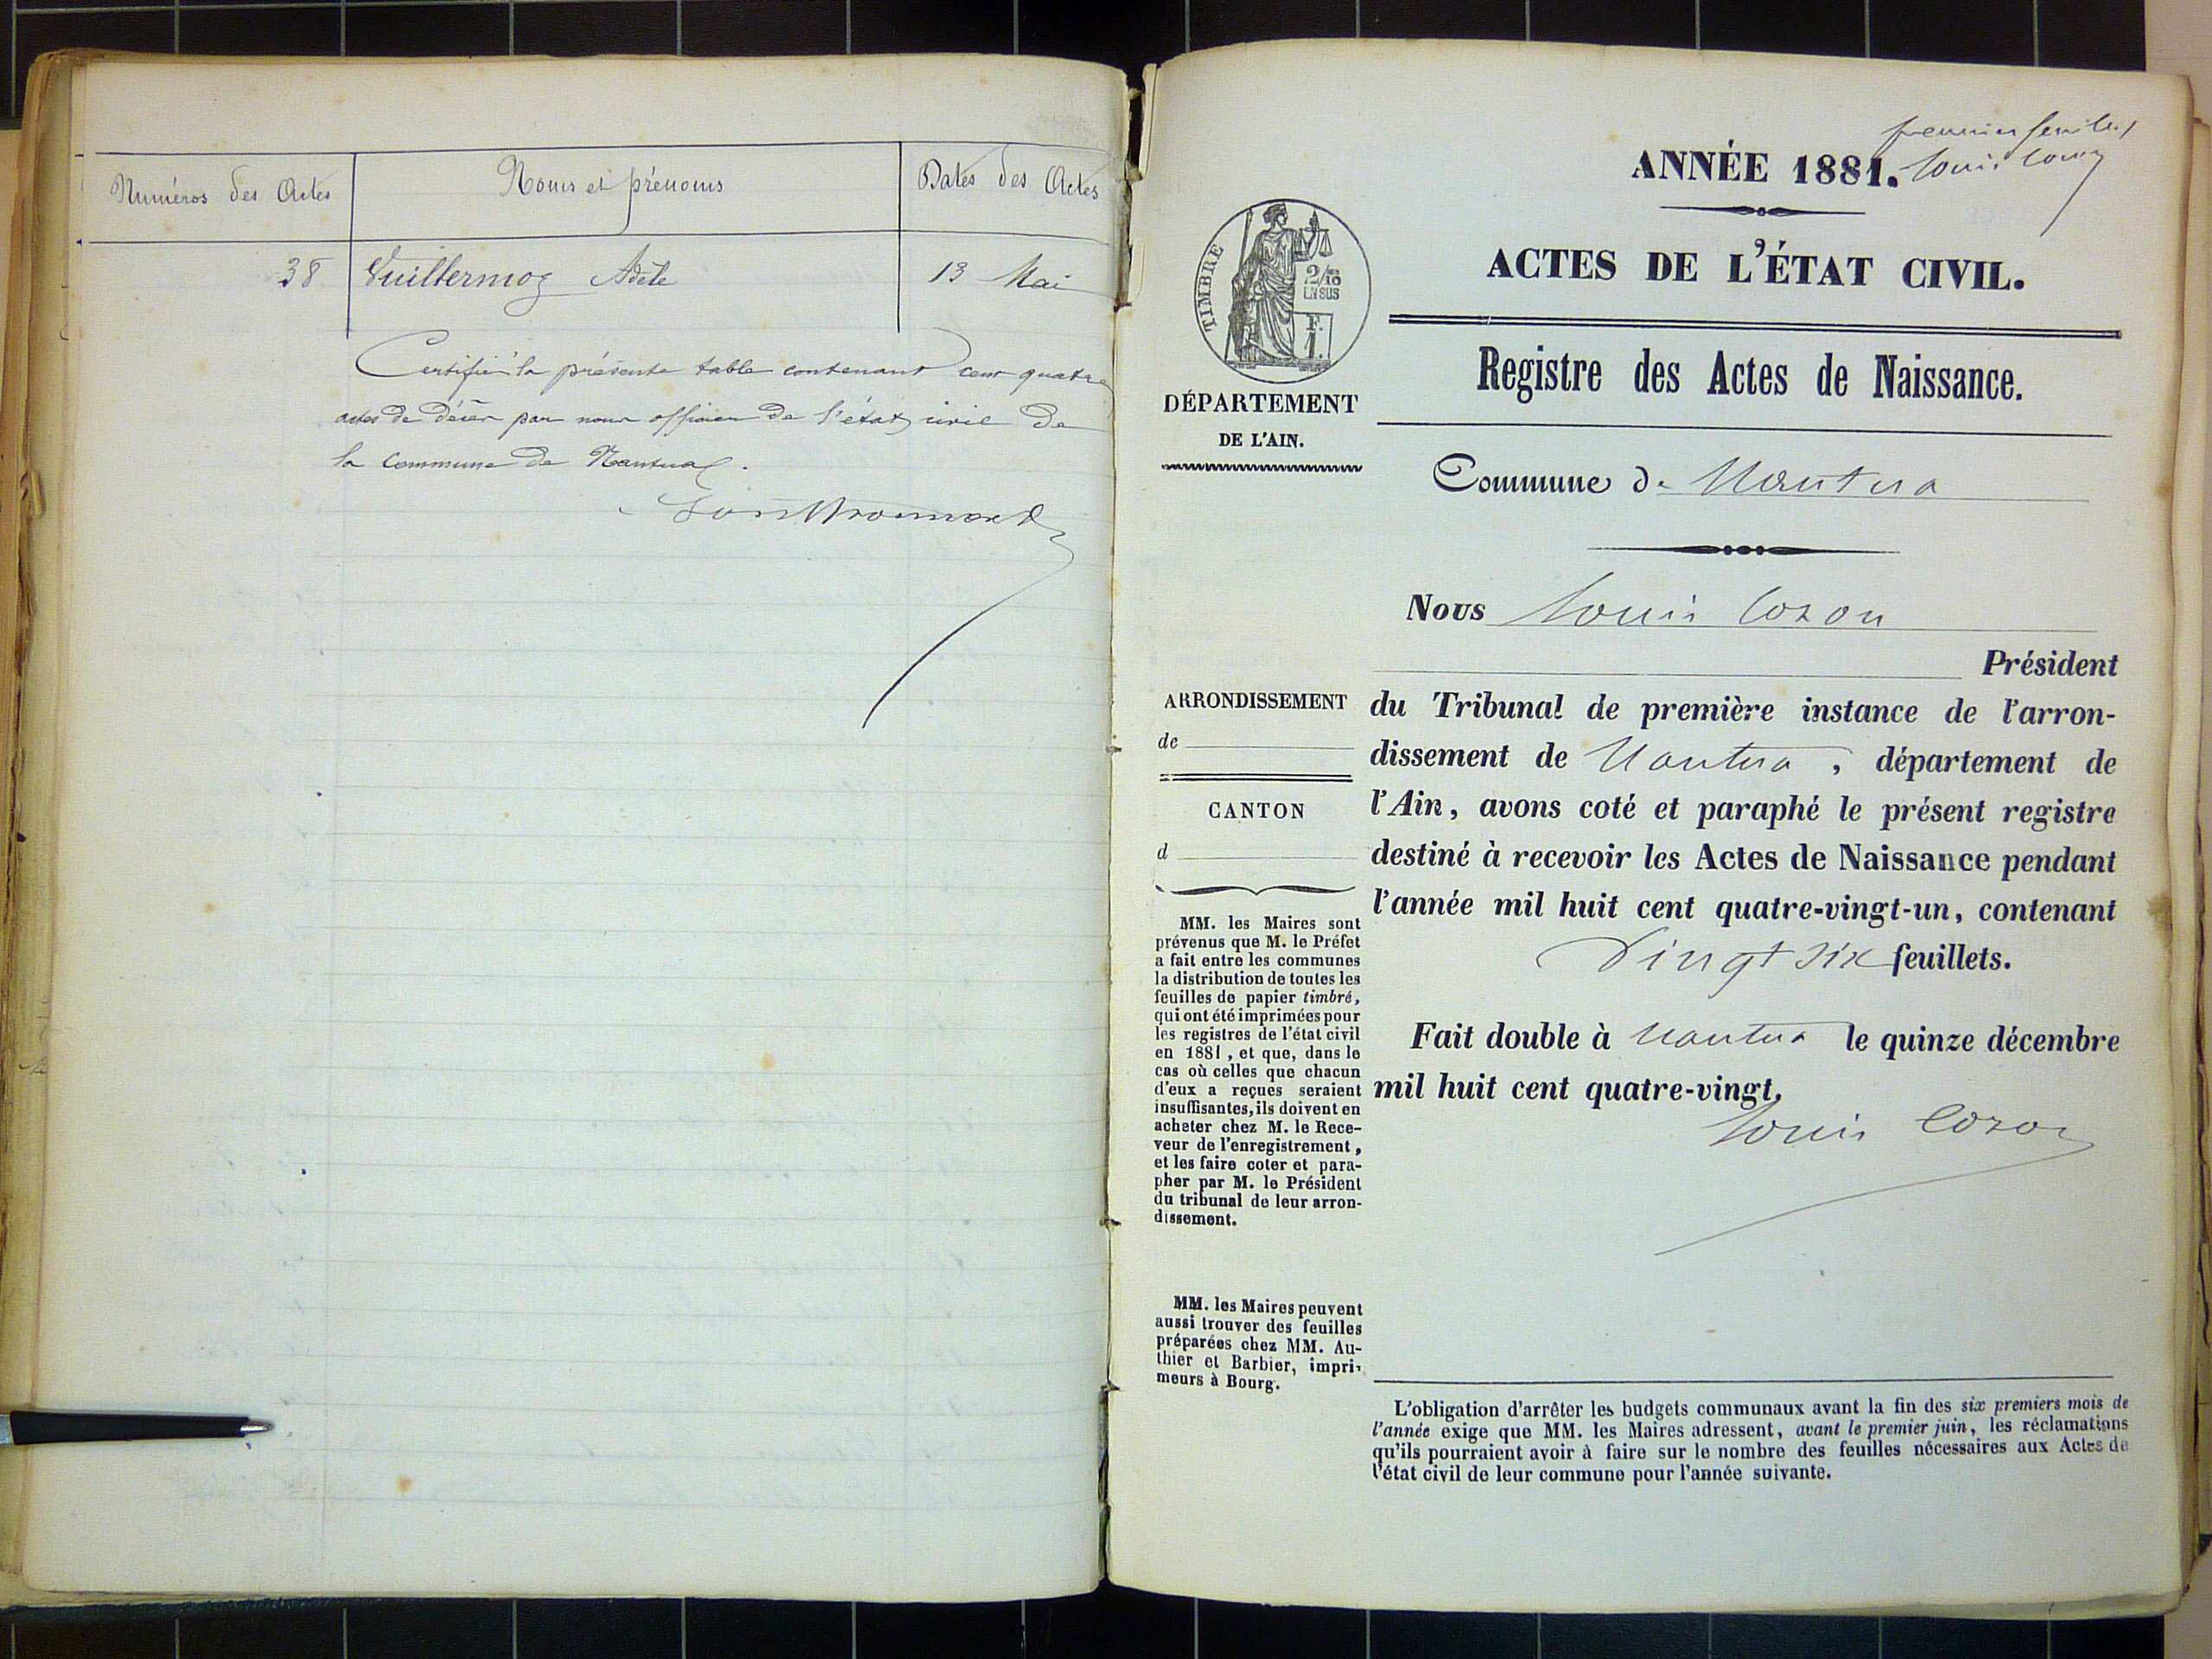 Numéros des Actes
Noms et prénoms
Dates des Actes
38
Vuillermoz Adèle
13 Mai
Certifié la présente table contenant cent quatre
actes de décès par nous officier de l'état civil de
la commune de Nantua.
premier feuillet
Louis Cozon
ANNÉE 1881.
ACTES DE L'ÉTAT CIVIL.
TIMBRE
2/10
EN SUS
F.
1.
DÉPARTEMENT
DE L'AIN.
Registre des Actes de Naissance.
Commune de Nantua
Nous Louis Cozon
Président
du Tribunal de première instance de l'arron-
dissement de Nantua, département de
l'Ain, avons coté et paraphé le présent registre
destiné à recevoir les Actes de Naissance pendant
l'année mil huit cent quatre-vingt-un, contenant
Vingt six feuillets.
Fait double à Nantua le quinze décembre
mil huit cent quatre-vingt.
Louis Cozon
ARRONDISSEMENT
de
CANTON
d
MM. les Maires sont
prévenus que M. le Préfet
a fait entre les communes
la distribution de toutes les
feuilles de papier timbré,
qui ont été imprimées pour
les registres de l'état civil
en 1881, et que, dans le
cas où celles que chacun
d'eux a reçues seraient
insuffisantes, ils doivent en
acheter chez M. le Rece-
veur de l'enregistrement,
et les faire coter et para-
pher par M. le Président
du tribunal de leur arron-
dissement.
MM. les Maires peuvent
aussi trouver des feuilles
préparées chez MM. Au-
thier et Barbier, impri-
meurs à Bourg.
L'obligation d'arrêter les budgets communaux avant la fin des six premiers mois de
l'année exige que MM. les Maires adressent, avant le premier juin, les réclamations
qu'ils pourraient avoir à faire sur le nombre des feuilles nécessaires aux Actes de
l'état civil de leur commune pour l'année suivante.